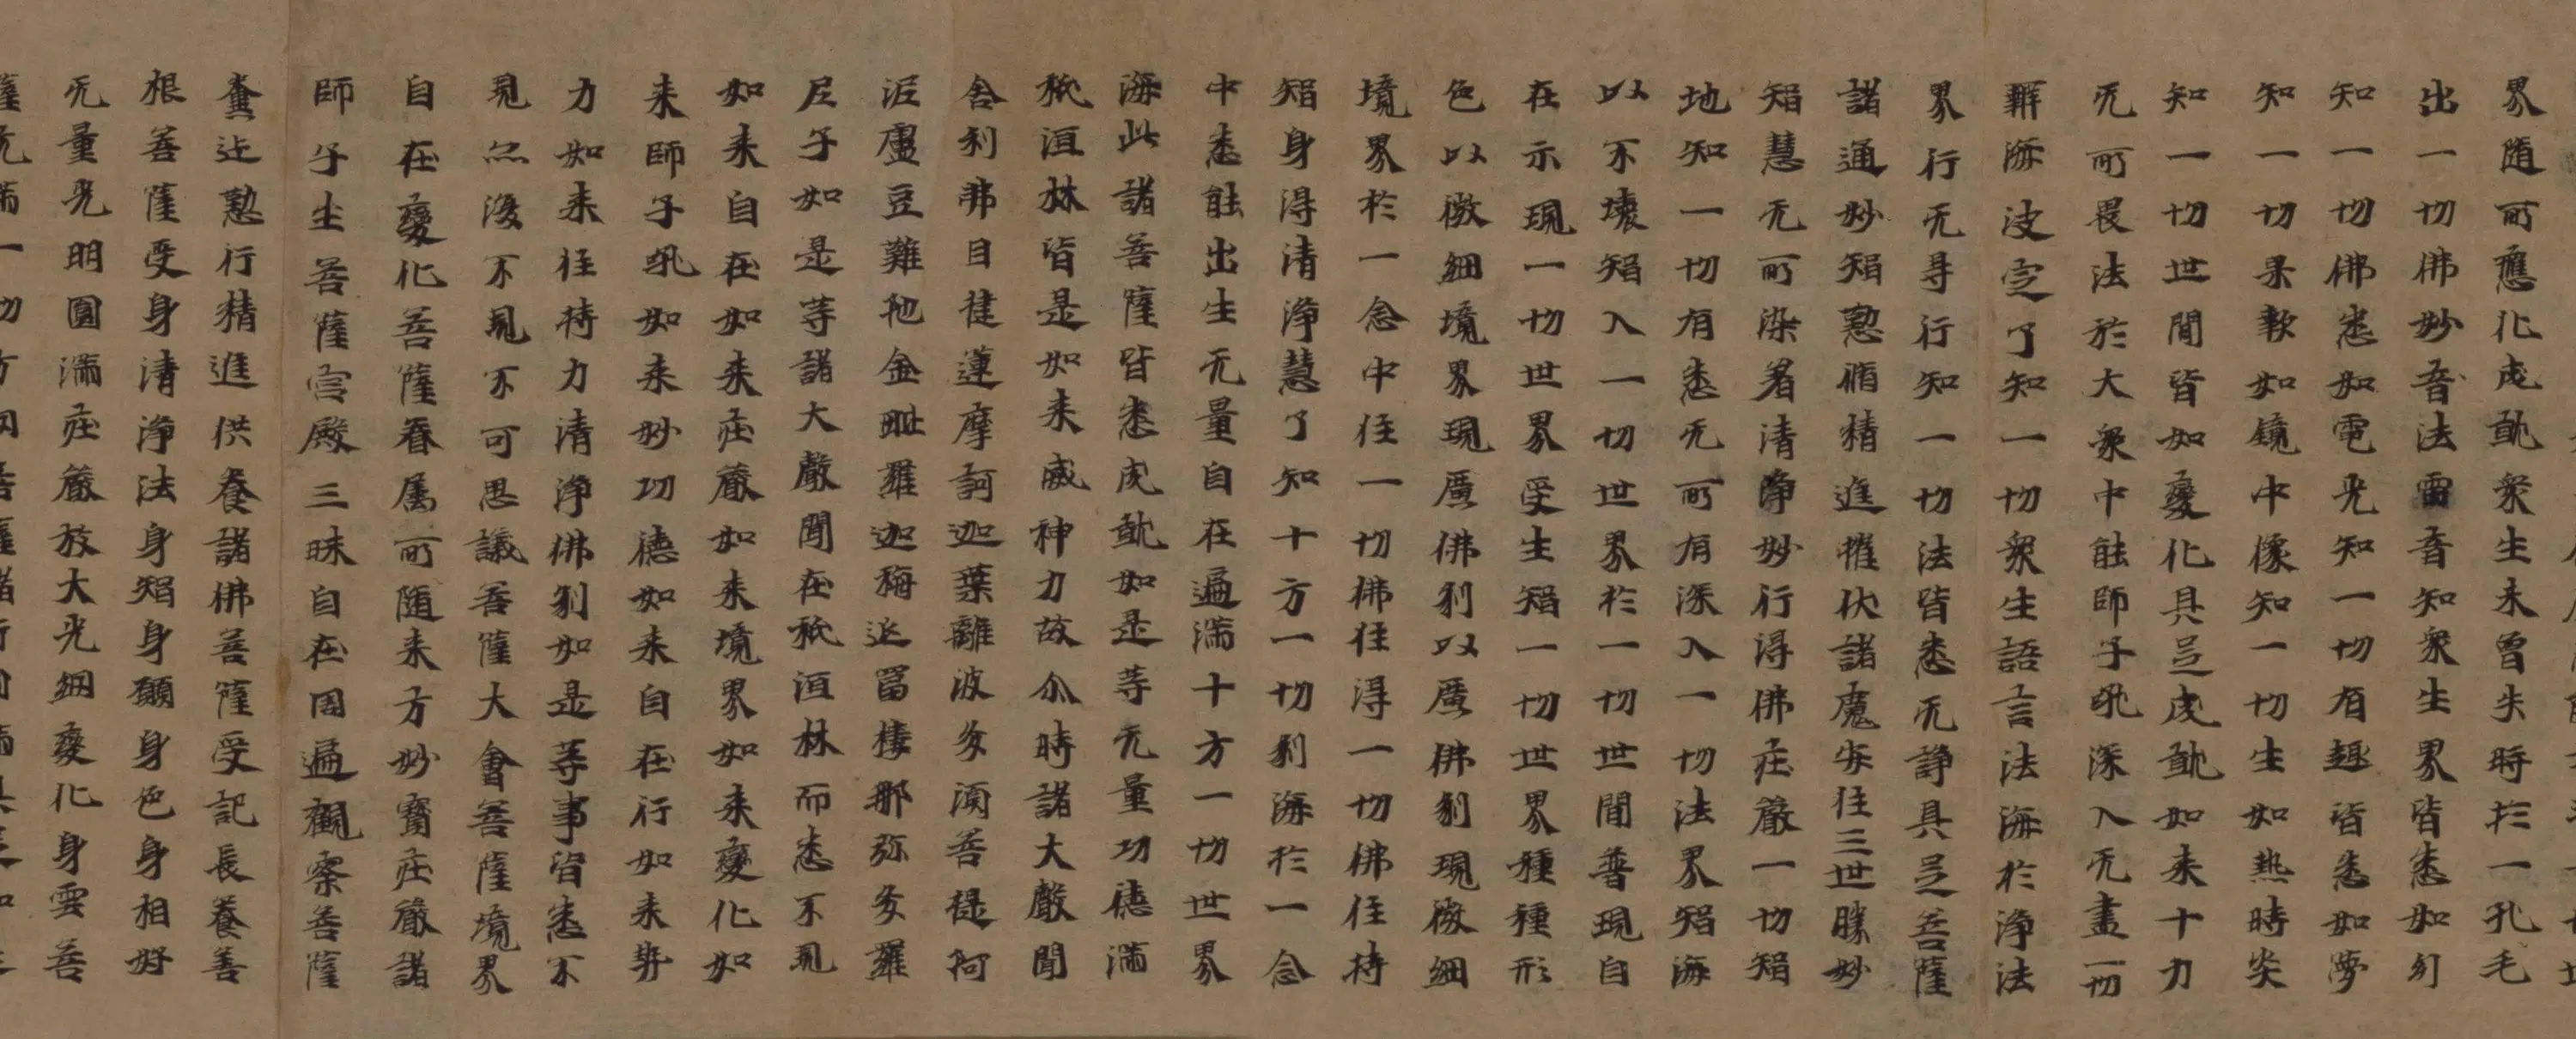 界随所應化成就衆生未曾失時於一孔毛
出一切佛妙音法雷音知衆生界皆悉如幻
知一切佛悉如電光知一切有趣皆悉如夢
知一切果報如鏡中像知一切生如熱時炎
知一切世間皆如變化具足成就如来十力
无所畏法於大衆中能師子吼深入无盡一切
辯海决定了知一切衆生語言法海於淨法
界行无㝵行知一切法皆悉无諍具足菩薩
諸通妙智懃脩精進摧伏諸魔安住三世勝妙
智慧无所染着清淨妙行得佛庄嚴一切智
地知一切有悉无所有深入一切法界智海
以不壞智入一切世界於一切世間普現自
在示現一切世界受生智一切世界種種形
色以微細境界現廣佛刹以廣佛刹現微細
境界於一念中住一切佛住得一切佛住持
智身得清淨慧了知十方一切刹海於一念
中悉能出生无量自在遍満十方一切世界
海此諸菩薩皆悉成就如是等无量功德満
秖洹林皆是如来威神力故尒時諸大聲聞
舎利弗目揵蓮摩訶迦葉離波多湏菩提阿
泥盧豆難陁金毗羅迦栴延冨樓那弥多羅
尼子如是等諸大聲聞在秖洹林而悉不見
如来自在如来庄嚴如来境界如来變化如
来師子吼如来妙功德如来自在行如来勢
力如来住持力清淨佛刹如是等事皆悉不
見亦復不見不可思議菩薩大會菩薩境界
自在變化菩薩眷属所随来方妙寳庄嚴諸
師子坐菩薩宫殿三昧自在周遍觀察菩薩
奮迅懃行精進供養諸佛菩薩受記長養善
根菩薩受身清淨法身智身願身色身相好
无量光明圓満庄嚴放大光網變化身雲菩